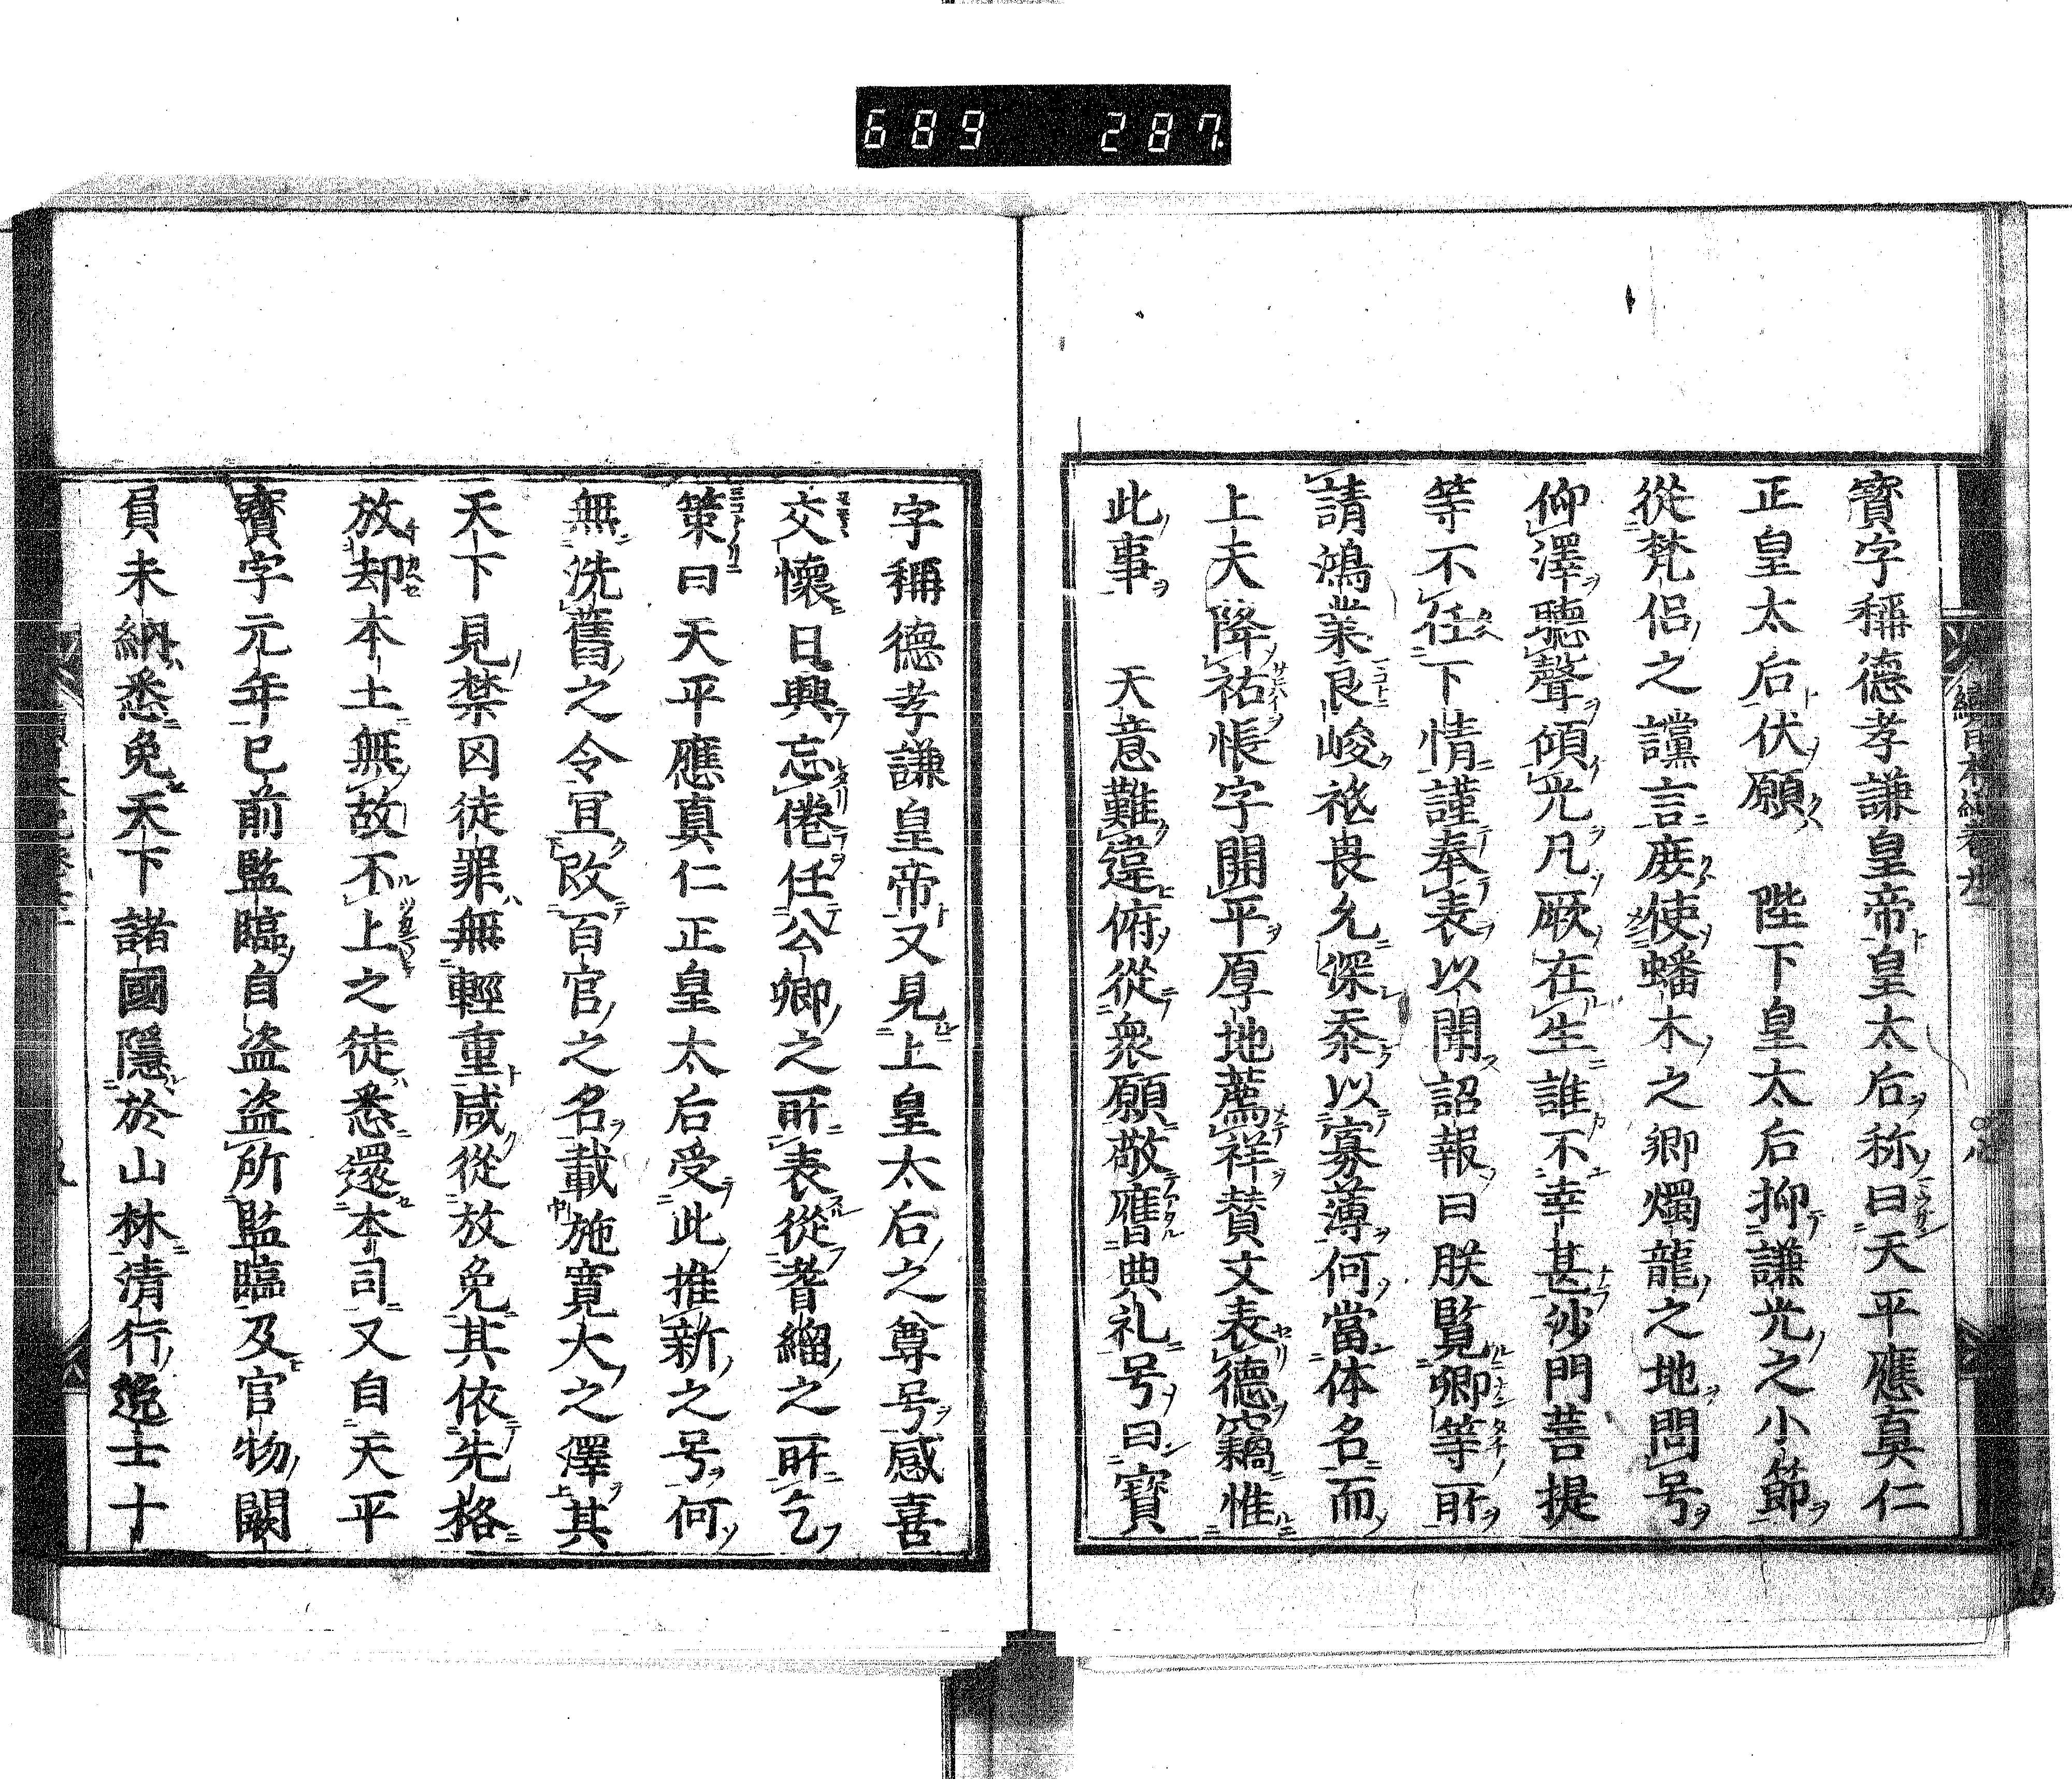 689 287
寳字稱德孝謙皇帝皇太后称曰天平應真仁
正皇太后伏願　陛下皇太后抑謙光之小節
從梵侶之讜言庶使蟠木之卿燭龍之地問号
仰澤聽聲傾光凡厥在生誰不幸甚沙門菩提
等不任下情謹奉表以聞詔報曰朕覧卿等所
請鴻業良峻祗畏允深忝以寡薄何當体名而
上天降祐帳字開平厚地薦祥賛文表德竊惟
此事　天意難違俯從衆願敬膺典礼号曰寳
字稱德孝謙皇帝又見上皇太后之尊号感喜
交懷日興忘倦任公卿之所表從耆緇之所乞
策曰天平應真仁正皇太后受此推新之号何
無洗舊之令宜改百官之名載施寛大之澤其
天下見禁囚徒罪無輕重咸從放免其依先格
放却本土無故不上之徒悉還本司又自天平
寳字元年已前監臨自盗盗所監臨及官物闕
負未納悉免天下諸國隱於山林清行逸士十